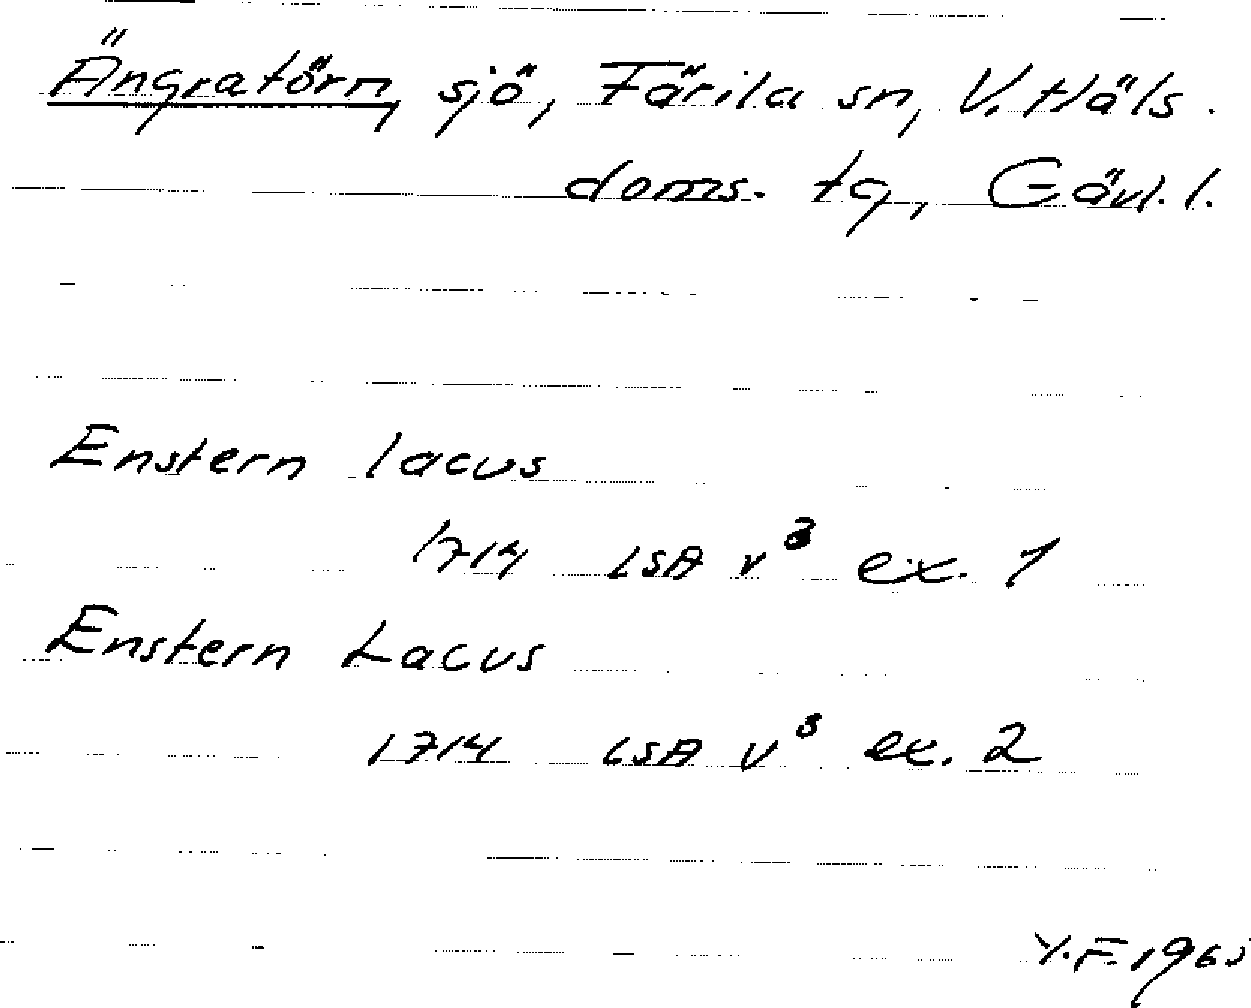 Ängratörn, sjö, Färila sn, V. Häls.
doms. tg, Gävl. l.
Enstern lacus
1714 LSA v³ ex. 1
Enstern Lacus
1714 LSA v³ ex. 2
Y.F. 1965